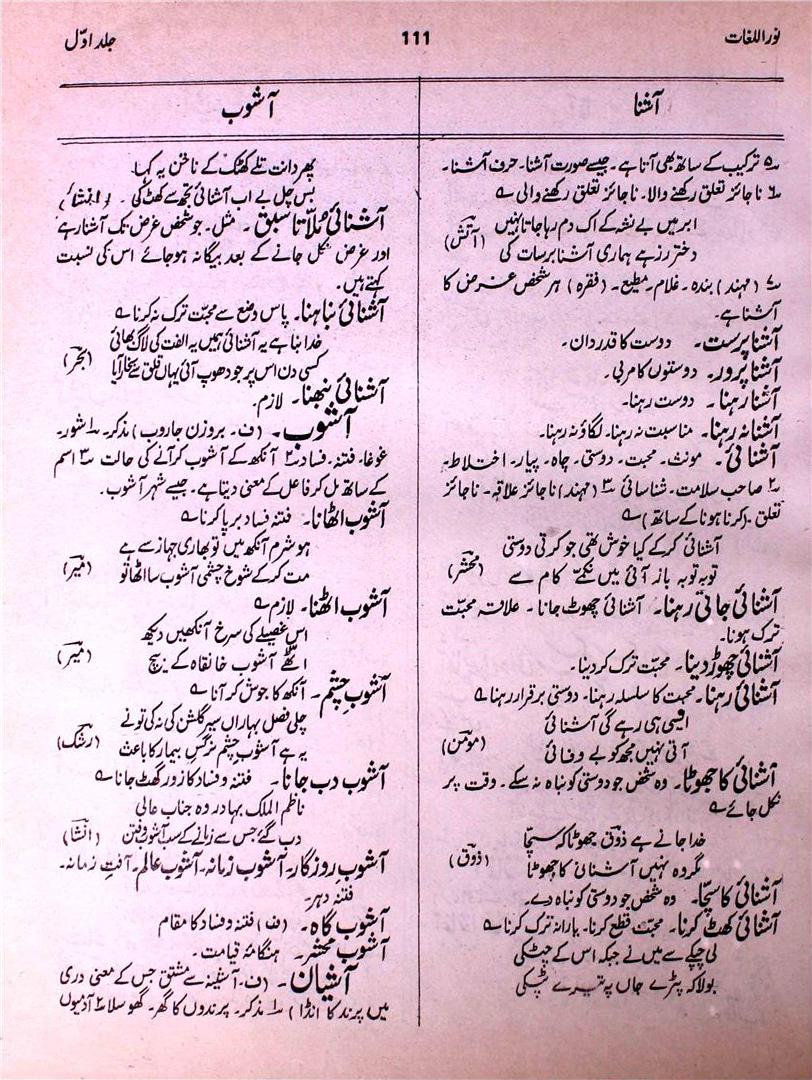 نور اللغات
111
جلد اوّل
آشنا
آشوب
۵ ترکیب کے ساتھ بھی آتا ہے۔ جیسے صورت آشنا۔ حرف آشنا۔
۶ ناجائز تعلق رکھنے والا۔ ناجائز تعلق رکھنے والی ؎
ابر میں بے نشہ کے اک دم رہا جاتا نہیں
دختر رز ہے ہماری آشنا برسات کی (آتش)
۷ (مہند) بندہ۔ غلام۔ مطیع۔ (فقرہ) ہر شخص غرض کا
آشنا ہے۔
آشنا پرست۔ دوست کا قدردان۔
آشنا پرور۔ دوستوں کا مربی۔
آشنا رہنا۔ دوست رہنا۔
آشنا نہ رہنا۔ مناسبت نہ رہنا۔ لگاؤ نہ رہنا۔
آشنائی۔ مونث۔ محبت۔ دوستی۔ چاہ۔ پیار۔ اختلاط۔
۲ صاحب سلامت۔ شناسائی ۳ (مہند) ناجائز علاقہ۔ ناجائز
تعلق۔ (کرنا ہونا کے ساتھ) ؎
آشنائی کرکے کیا خوش تھی جو کرتی دوستی
توبہ توبہ باز آئی میں نکمّے کام سے (محشر)
آشنائی جاتی رہنا۔ آشنائی چھوٹ جانا۔ علاقہ محبّت
ترک ہونا۔
آشنائی چھوڑ دینا۔ محبّت ترک کردینا۔
آشنائی رہنا۔ محبت کا سلسلہ رہنا۔ دوستی برقرار رہنا ؎
ایسی ہی رہے گی آشنائی
آتی نہیں مجھ کو بے وفائی (مومن)
آشنائی کا جھوٹا۔ وہ شخص جو دوستی کو نباہ نہ سکے۔ وقت پر
نکل جائے ؎
خدا جانے ہے ذوق جھوٹا کہ سچّا
مگر وہ نہیں آشنائی کا جھوٹا (ذوق)
آشنائی کا سچّا۔ وہ شخص جو دوستی کو نباہ دے۔
آشنائی کھٹ کرنا۔ محبّت قطع کرنا۔ یارانہ ترک کرنا ؎
لی چپکے سے میں نے جبکہ اس کے چٹکی
بولا کہ پڑے جاں پہ تیرے پٹکی
پھر دانت تلے کھٹک کے ناخن یہ کہا۔
بس چل بے اب آشنائی تجھ سے کھٹ کی۔ (انشا)
آشنائی مُلّا تا سبق۔ مثل۔ جو شخص غرض تک آشنا رہے
اور غرض نکل جانے کے بعد بیگانہ ہوجائے اس کی نسبت
کہتے ہیں۔
آشنائی نباہنا۔ پاس وضع سے محبّت ترک نہ کرنا ؎
خدا نباہے یہ آشنائی ہمیں یہ الفت کی لاگ بھائی
کسی دن اس پر جو دھوپ آئی یہاں قلق سے بخار آیا (بحر)
آشنائی نبھنا۔ لازم۔
آشوب۔ (ف۔ بروزن جاروب) مذکر۔ ۱ شور۔
غوغا۔ فتنہ۔ فساد۔ ۲ آنکھ کے آشوب کر آنے کی حالت ۳ اسم
کے ساتھ مل کر فاعل کے معنی دیتا ہے۔ جیسے شہر آشوب۔
آشوب اٹھانا۔ فتنہ فساد برپا کرنا ؎
ہو شرم آنکھ میں تو بھاری جہاز سے ہے
مت کرکے شوخ چشمی آشوب سا اٹھا تو (میر)
آشوب اٹھنا۔ لازم ؎
اس غصیلے کی سرخ آنکھیں دیکھ
اٹھّے آشوب خانقاہ کے بیچ (میر)
آشوبِ چشم۔ آنکھ کا جوش کر آنا ؎
چلی فصل بہاراں سیر گلشن کی نہ کی تو نے
یہ ہے آشوب چشم نرگسِ بیمار کا باعث (رشک)
آشوب دب جانا۔ فتنہ و فساد کا زور گھٹ جانا ؎
ناظم الملک بہادر وہ جناب عالی
دب گئے جس سے زمانے کے سب آشوب و فتن (انشا)
آشوبِ روزگار۔ آشوب زمانہ۔ آشوب عالم۔ آفت زمانہ۔
فتنۂ دہر۔
آشوب گاہ۔ (ف) فتنہ و فساد کا مقام
آشوبِ محشر۔ ہنگامۂ قیامت۔
آشیان۔ (ف۔ آشینہ سے مشتق جس کے معنی دری
میں پرند کا انڈا) ۱ مذکر۔ پرندوں کا گھر۔ گھونسلا ۲ آدمیوں